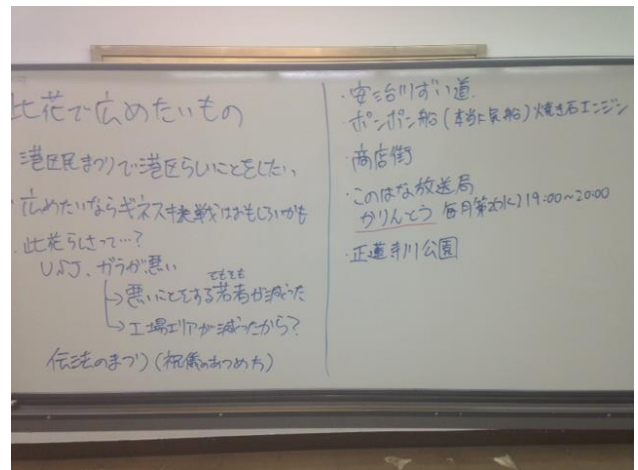 此花で広めたいもの
港区民まつりで港区らしいことをしたい。
・広めたいならギネス挑戦はおもしろいかも
・此花らしさって…?
USJ、ガラが悪い
でもでも
→悪いことをする若者が減った
→工場エリアが減ったから?
伝法のまつり(祝儀のあつめ方)
・安治川ずい道
・ポンポン船(本当は気船)焼き石エンジン
・商店街
・このはな放送局
かりんとう 毎月第 19:00~20:00
・正蓮寺川公園